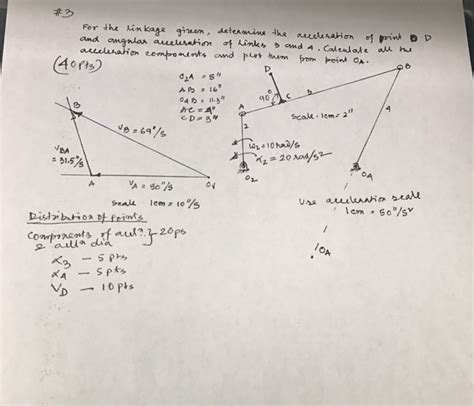 #3
For the linkage given, determine the acceleration of point D
and angular acceleration of links 3 and 4. Calculate all the
acceleration components and plot them from point OA.
(40pts)
O2A = 5"
AB = 16"
O4B = 11.3"
AC = 4"
CD = 3"
D
B
90°
C
3
A
4
Scale - 1cm = 2"
2
ω2 = 10 rad/s
α2 = 20 rad/s²
O2
OA
B
VB = 69"/s
VBA
= 31.5"/s
A
VA = 50"/s
OV
Scale 1cm = 10"/s
Use acceleration scale
1cm = 50"/s²
OA
Distribution of points
Components of accl? } 20ps
& accln dia
α3 - 5 pts
αA - 5 pts
VD - 10 pts